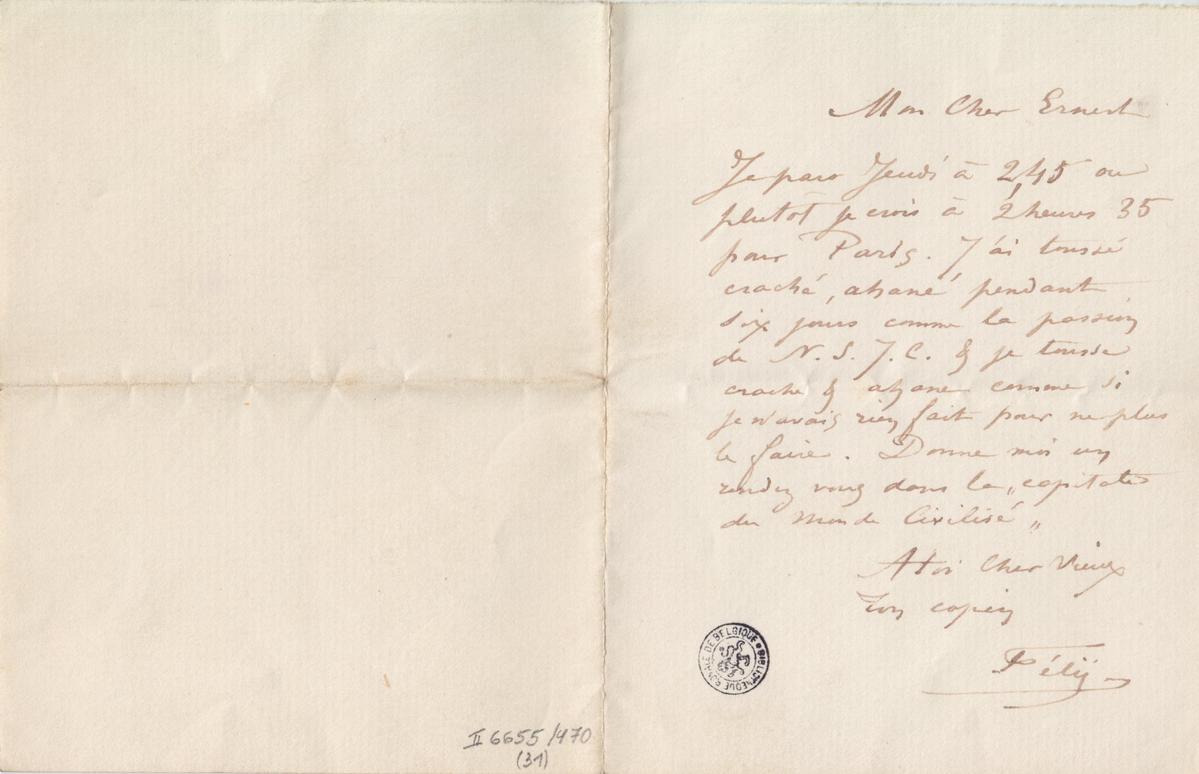 Mon Cher Ernest
Je pars Jeudi à 2,45 ou
plutôt je crois à 2 heures 35
pour Paris. J'ai toussé
craché, ahané pendant
six jours comme la passion
de N. S. J. C. & je tousse
crache & ahane comme si
je n'avais rien fait pour ne plus
le faire. Donne moi un
rendez vous dans la „capitale
du Monde Civilisé„
A toi Cher Vieux
Ton copin
Fély
BIBLIOTHEQUE ROYALE DE BELGIQUE
II 6655/470
(31)